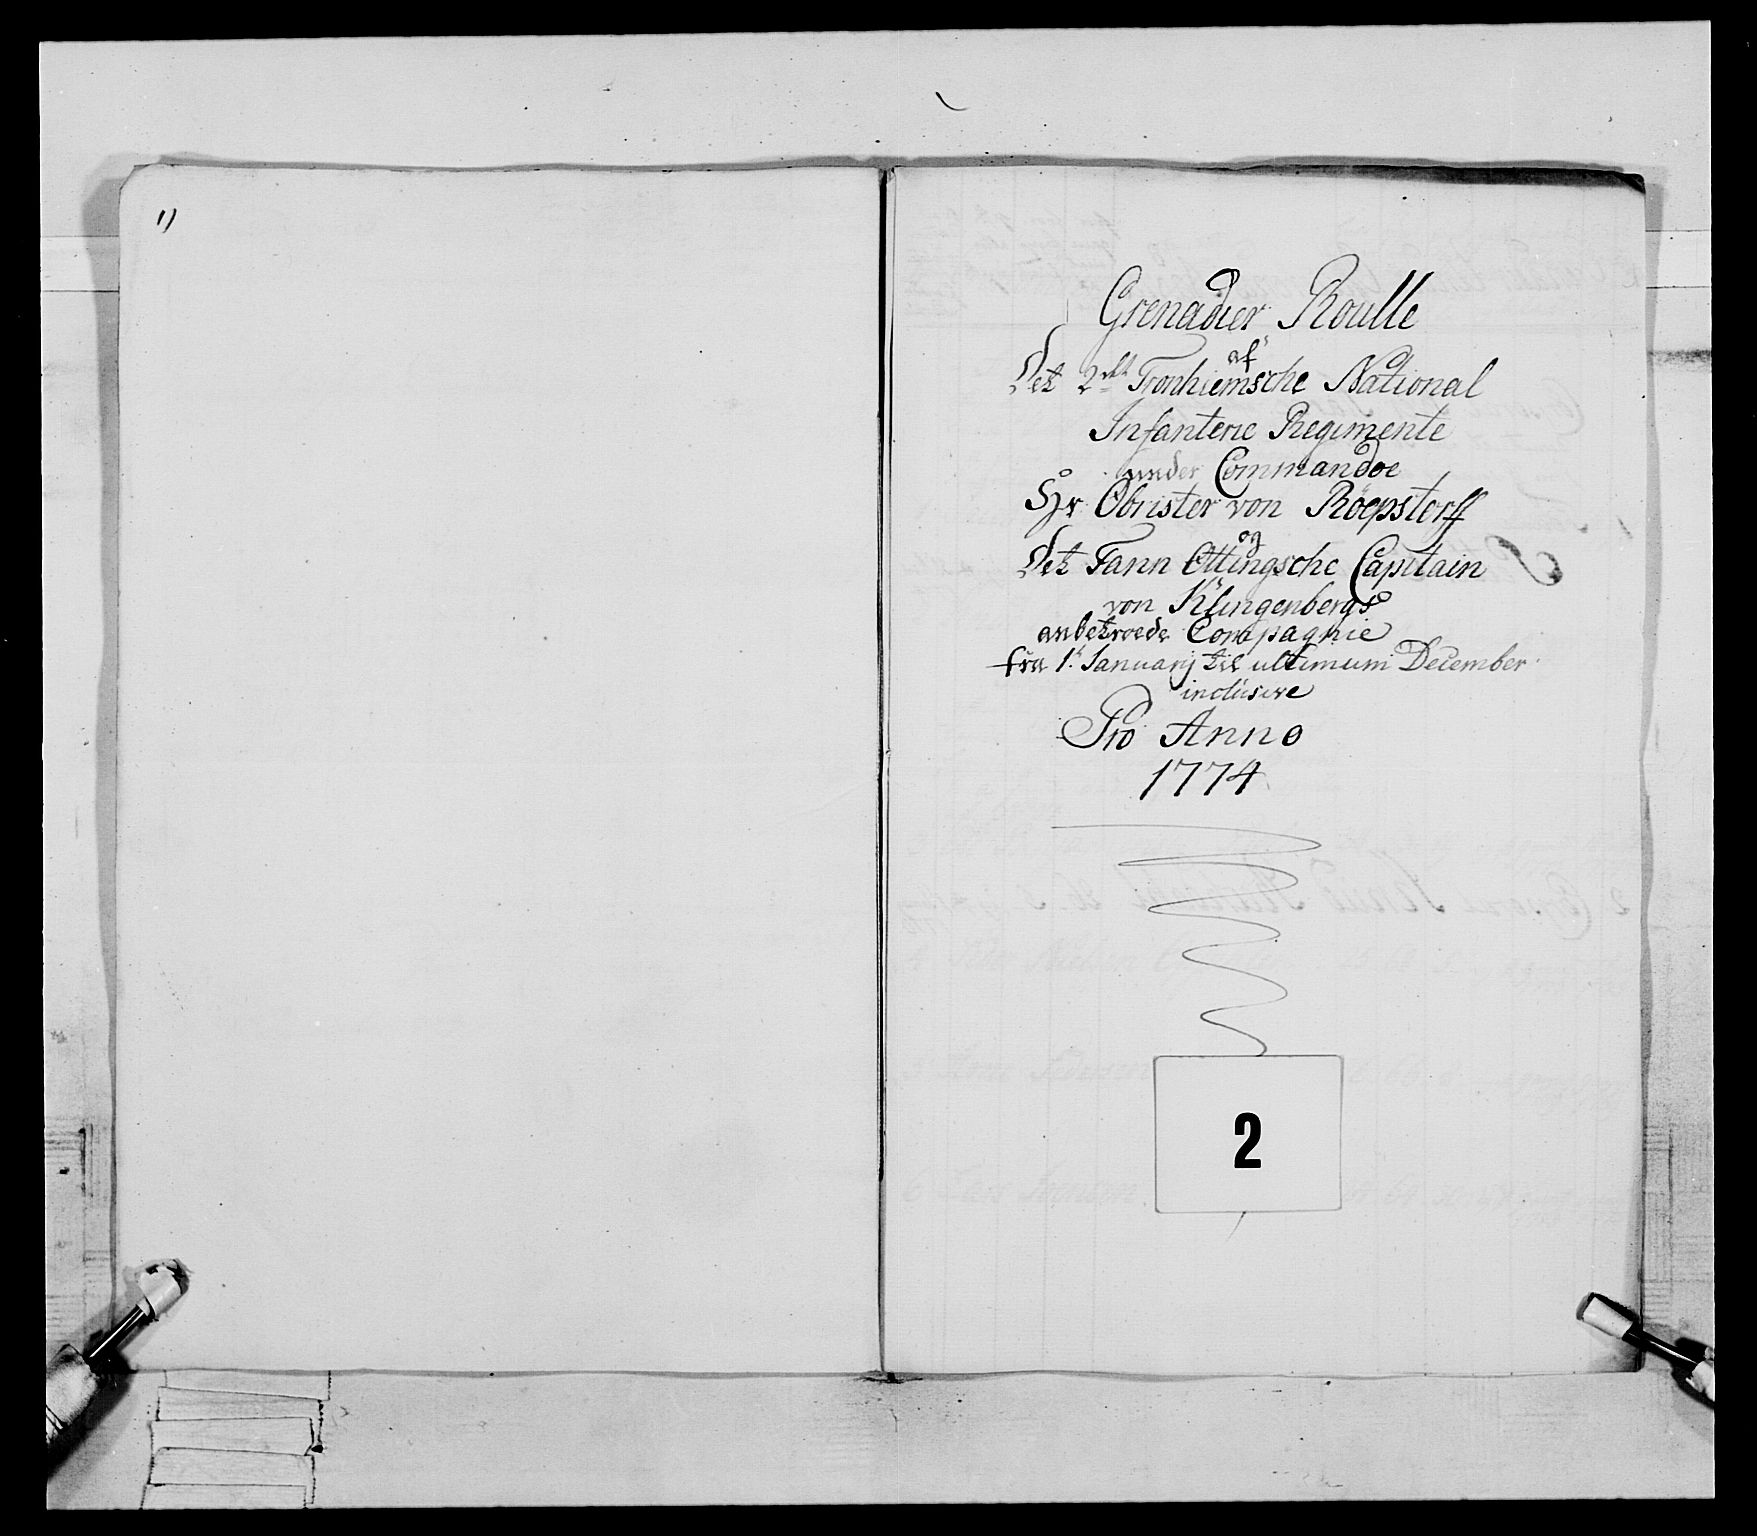 1)
Grenadier Roulle
af
Det 2det Tronhiemsche National
Infanterie Regimente
under Commandoe
Hr Obrister von Röepstorff
og
Det Fann Ottingsche Capitain
von Klingenbergs
anbetroede Compagnie
fra 1t January til ultimum December
inclusive
Pro Anno
1774
2